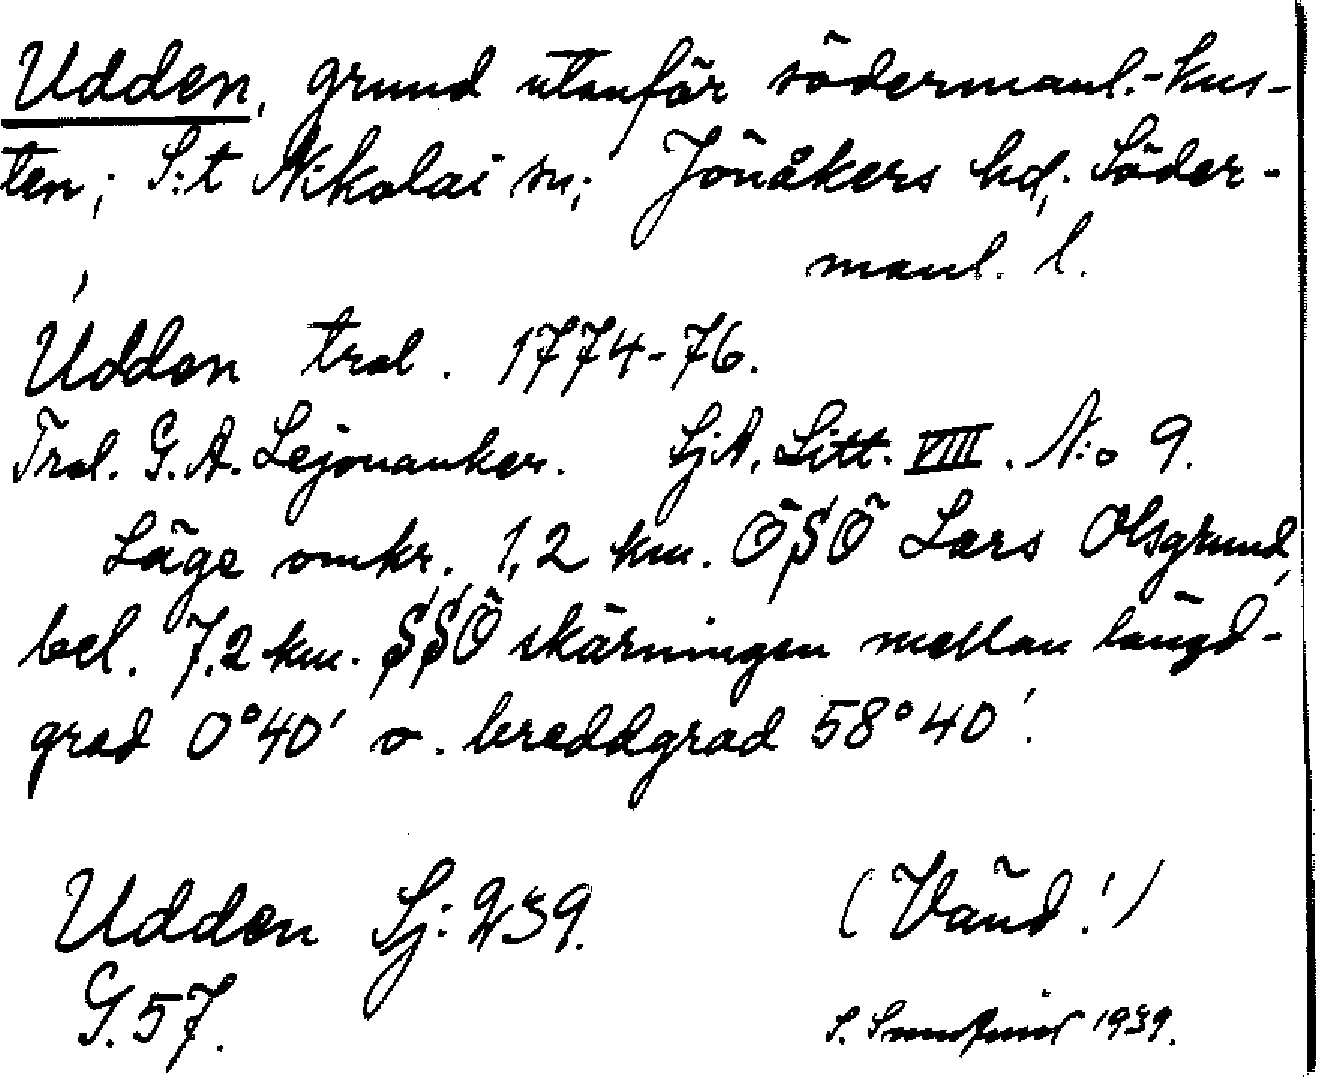 Udden, grund utanför södermanl.-kus-
ten; S:t Nikolai sn; Jönåkers hd, Söder-
manl. l.
Udden tral. 1774-76.
Tral. G. A. Lejonanker. SjA. Litt. VIII. N:o 9.
Läge omkr. 1,2 km. ÖSÖ Lars Olsgrund,
bel. 7,2 km. SSÖ skärningen mellan längd-
grad 0°40' o. breddgrad 58°40'.
Udden Sj: 239. (Vänd!)
G. 57. S. 1939.